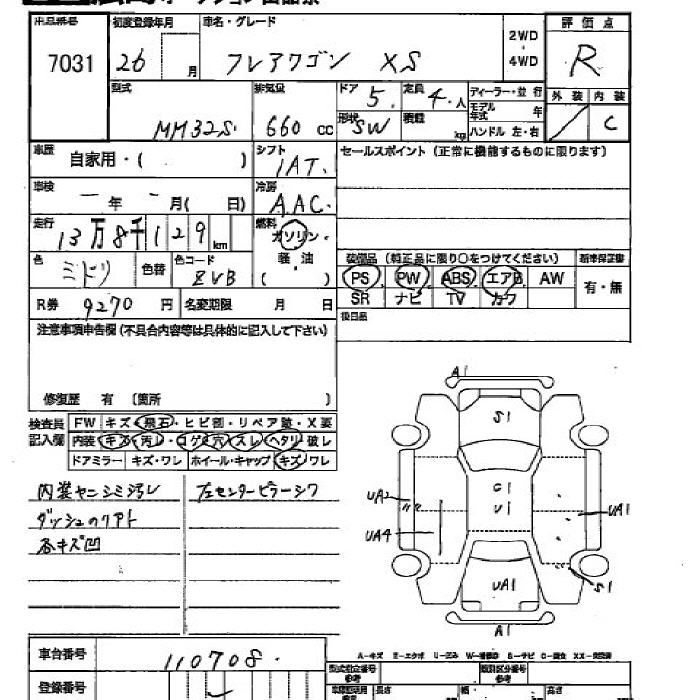 出品番号 初度登録年月 車名・グレード 評価点
7031 26 月 フレアワゴン XS 2WD・4WD R
型式 排気量 ドア 定員 ディーラー・並行 外装 内装
MM32S 660 cc 5 4人 モデル年式 年 C
形状 積載
SW kg ハンドル 左・右
車歴 自家用・( ) シフト セールスポイント (正常に機能するものに限ります)
IAT
車検 年 月( 日) 冷房
AAC
走行 13万8千129km 燃料
ガソリン・軽油 ( )
色 ミドリ 色替 色コード ZVB
装備品 (純正品に限り○をつけてください) 新車保証書
PS PW ABS エアB AW 有・無
SR ナビ TV カワ
R券 9270円 名変期限 月 日
後日品
注意事項申告欄(不具合内容等は具体的に記入して下さい)
修復歴 有 (箇所 )
検査員記入欄
FW キズ・飛石・ヒビ割・リペア跡・X要
内装 キズ・汚レ・コゲ穴・スレ・ヘタリ・破レ
ドアミラー キズ・ワレ ホイール・キャップ キズ・ワレ
内装ヤニシミ汚レ 左センターピラーシワ
ダッシュのリアト
各キズ凹
A1
S1
G1
U1
UA2
UA1
UA4
UA1
S1
A1
A-キズ E-エクボ U-凹み
車台番号 110708
型式指定番号 参考 類別区分番号 参考
登録番号
長さ 幅 高さ